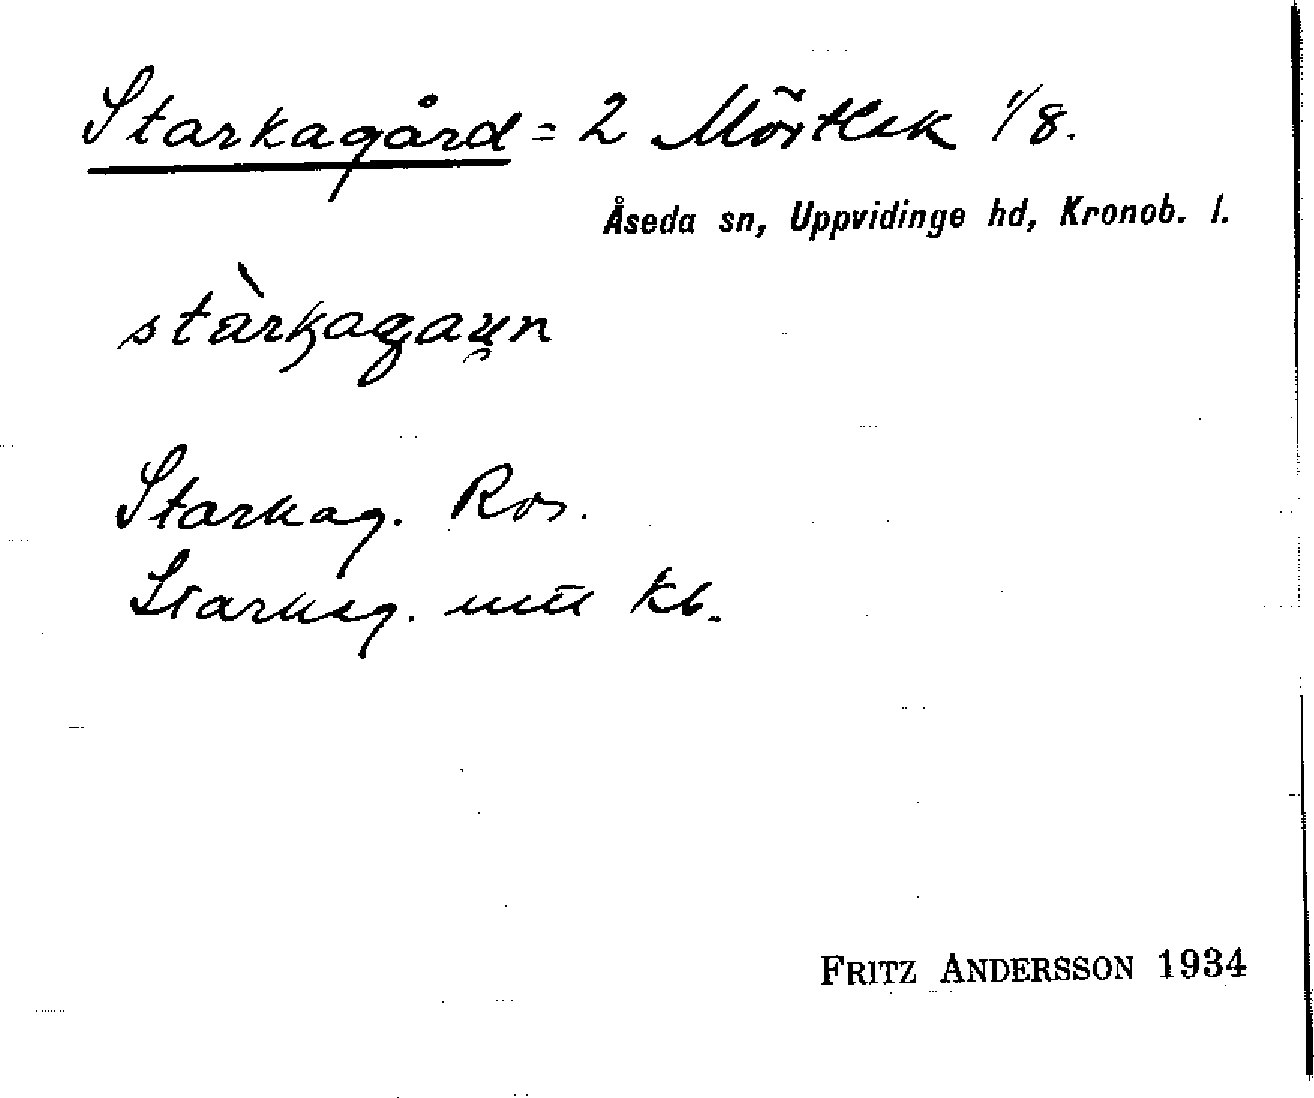 Starkagård = 2 Mörtlek 1/8.
Åseda sn, Uppvidinge hd, Kronob. l.
stàrkagaɯn
Starkag. Ros.
Starkag. mtl kb.
FRITZ ANDERSSON 1934